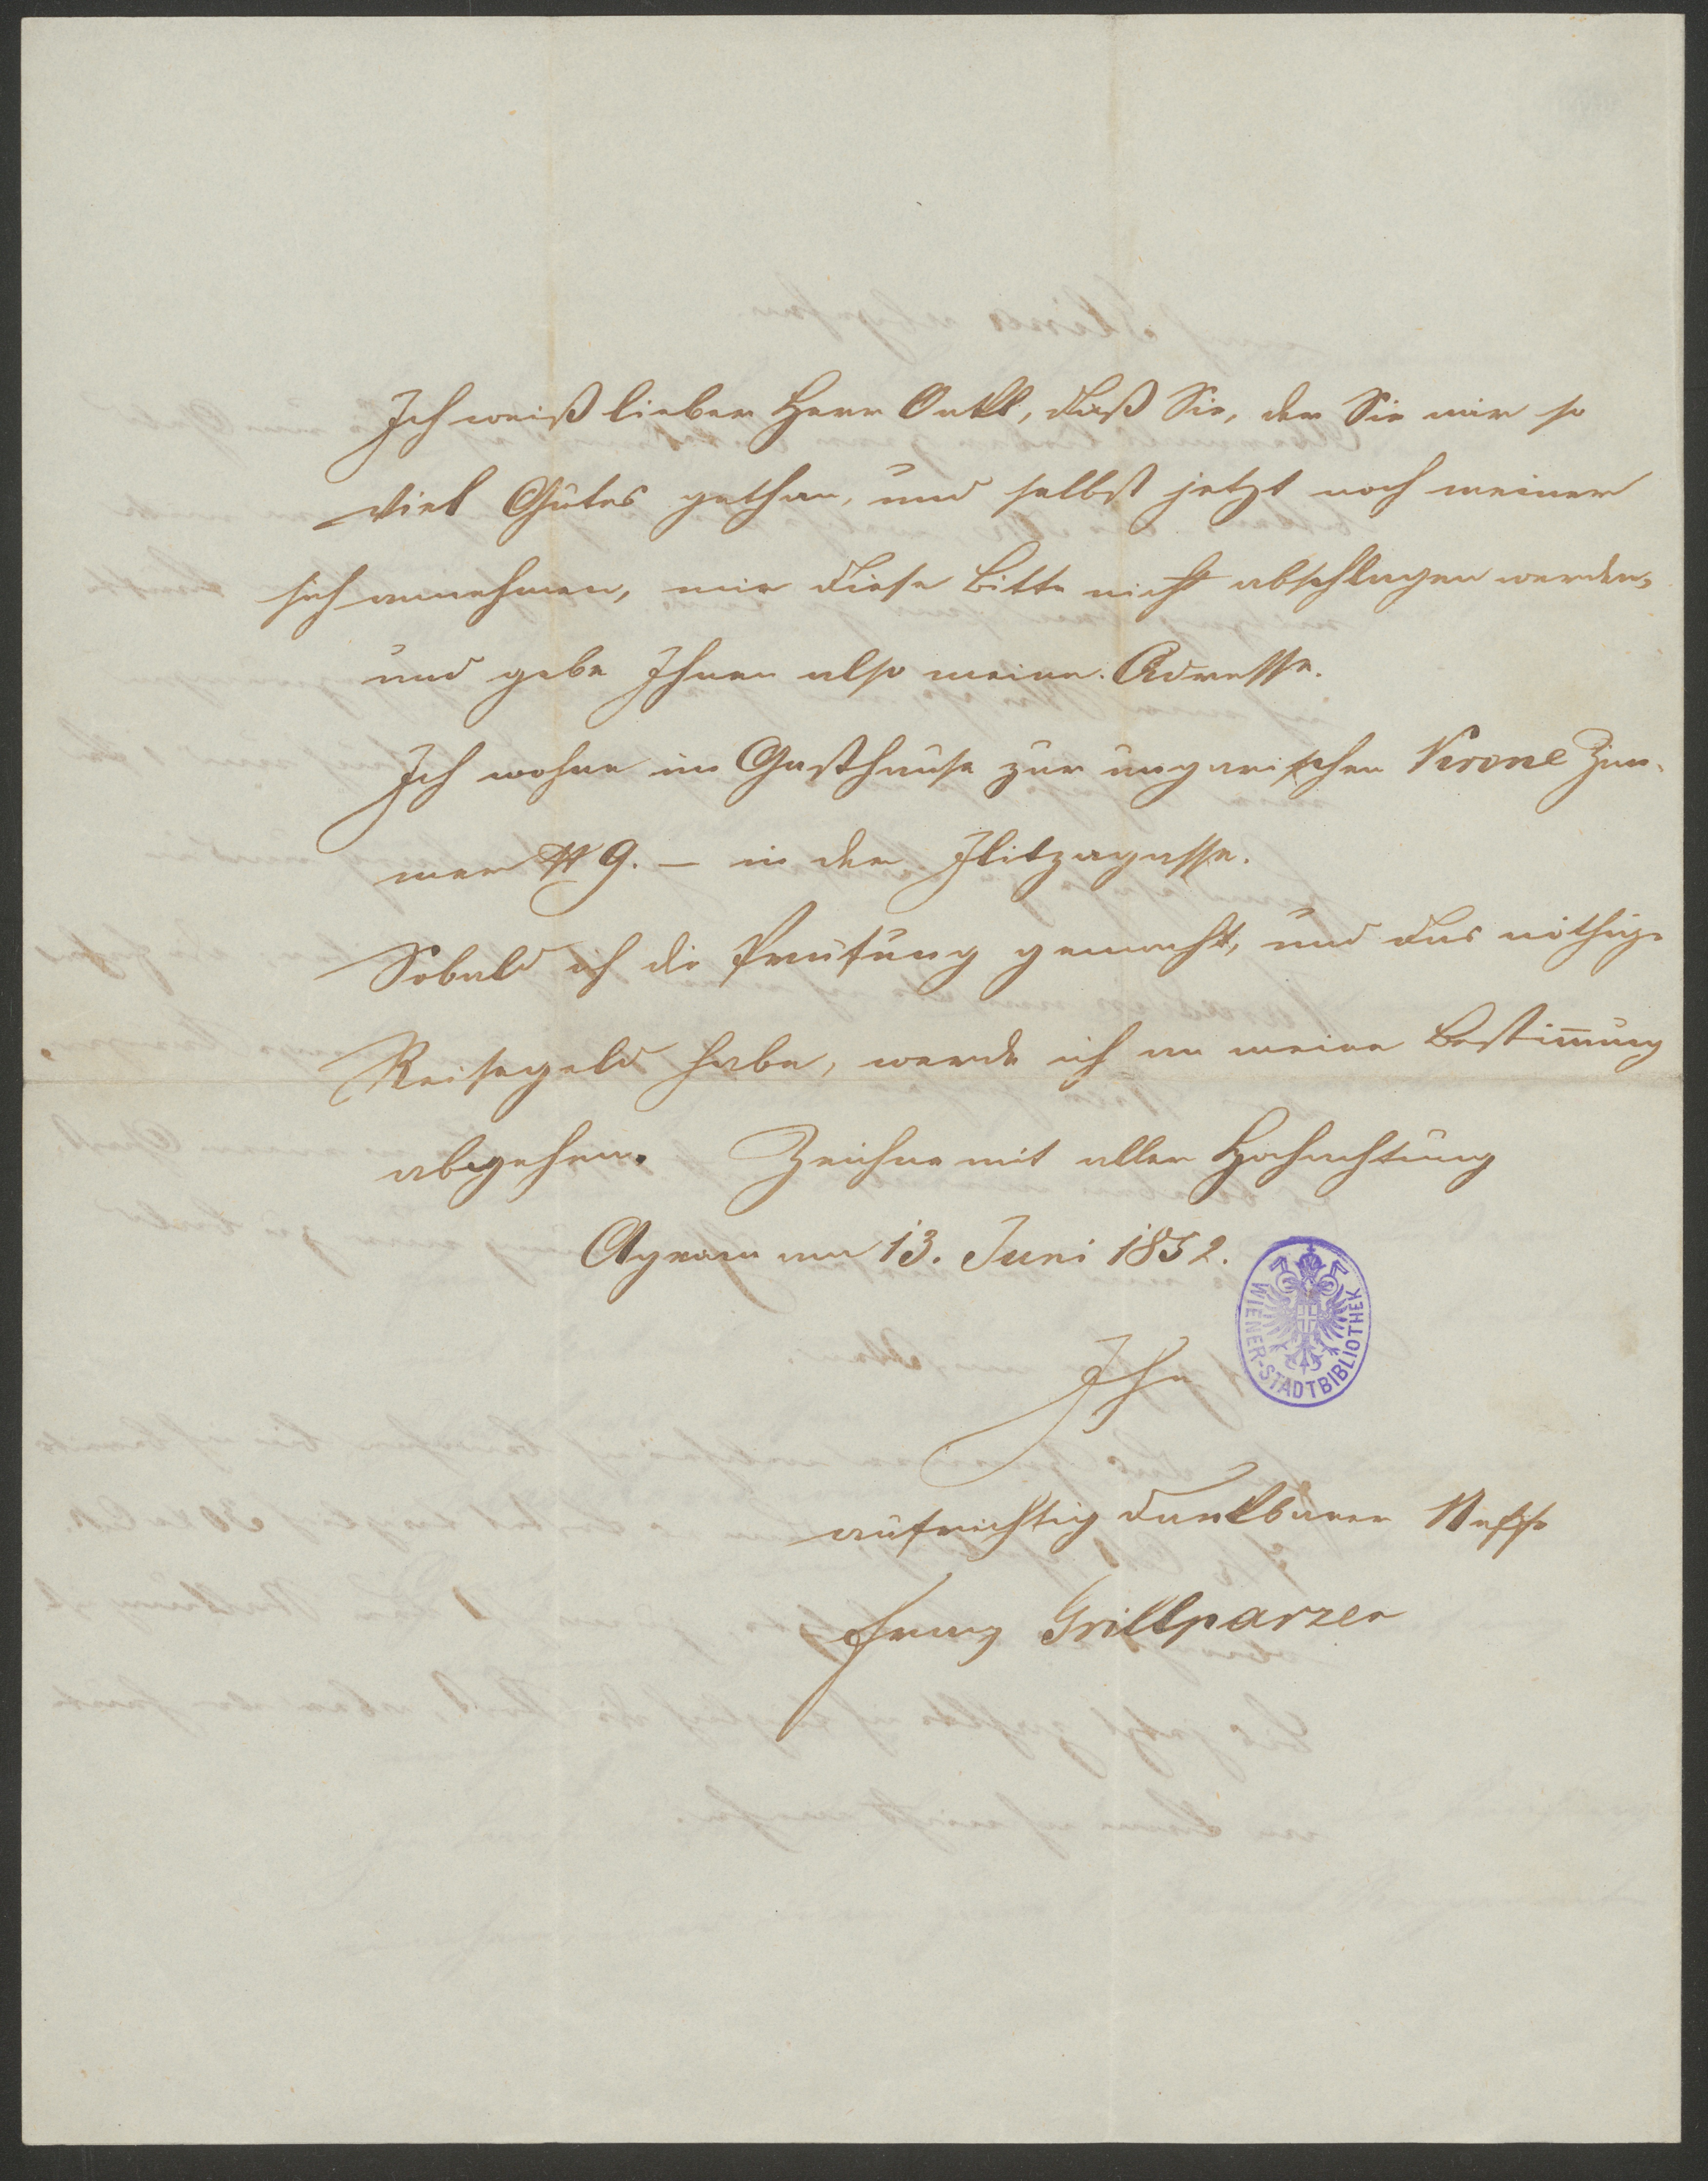 Ich weiß lieber Herr Onkl, daß Sie, der Sie mir so
viel Gutes gethan, und selbst jetzt noch meiner
sich annehmen, mir diese Bitte nicht abschlagen werden,
und gebe Ihnen also meine Adresse.
Ich wohne im Gasthause zur ungarischen Krone Zim-
mer N 9. — in der Illitzagasse.
Sobald ich die Prüfung gemacht, und das nöthige
Reisegeld habe, werde ich an meine Bestim̅ung
abgehen. Zeichne mit aller Hochachtung
Agram am 13. Juni 1852.
WIENER-STADTBIBLIOTHEK
Ihr
aufrichtig dankbarer Neffe
Franz Grillparzer